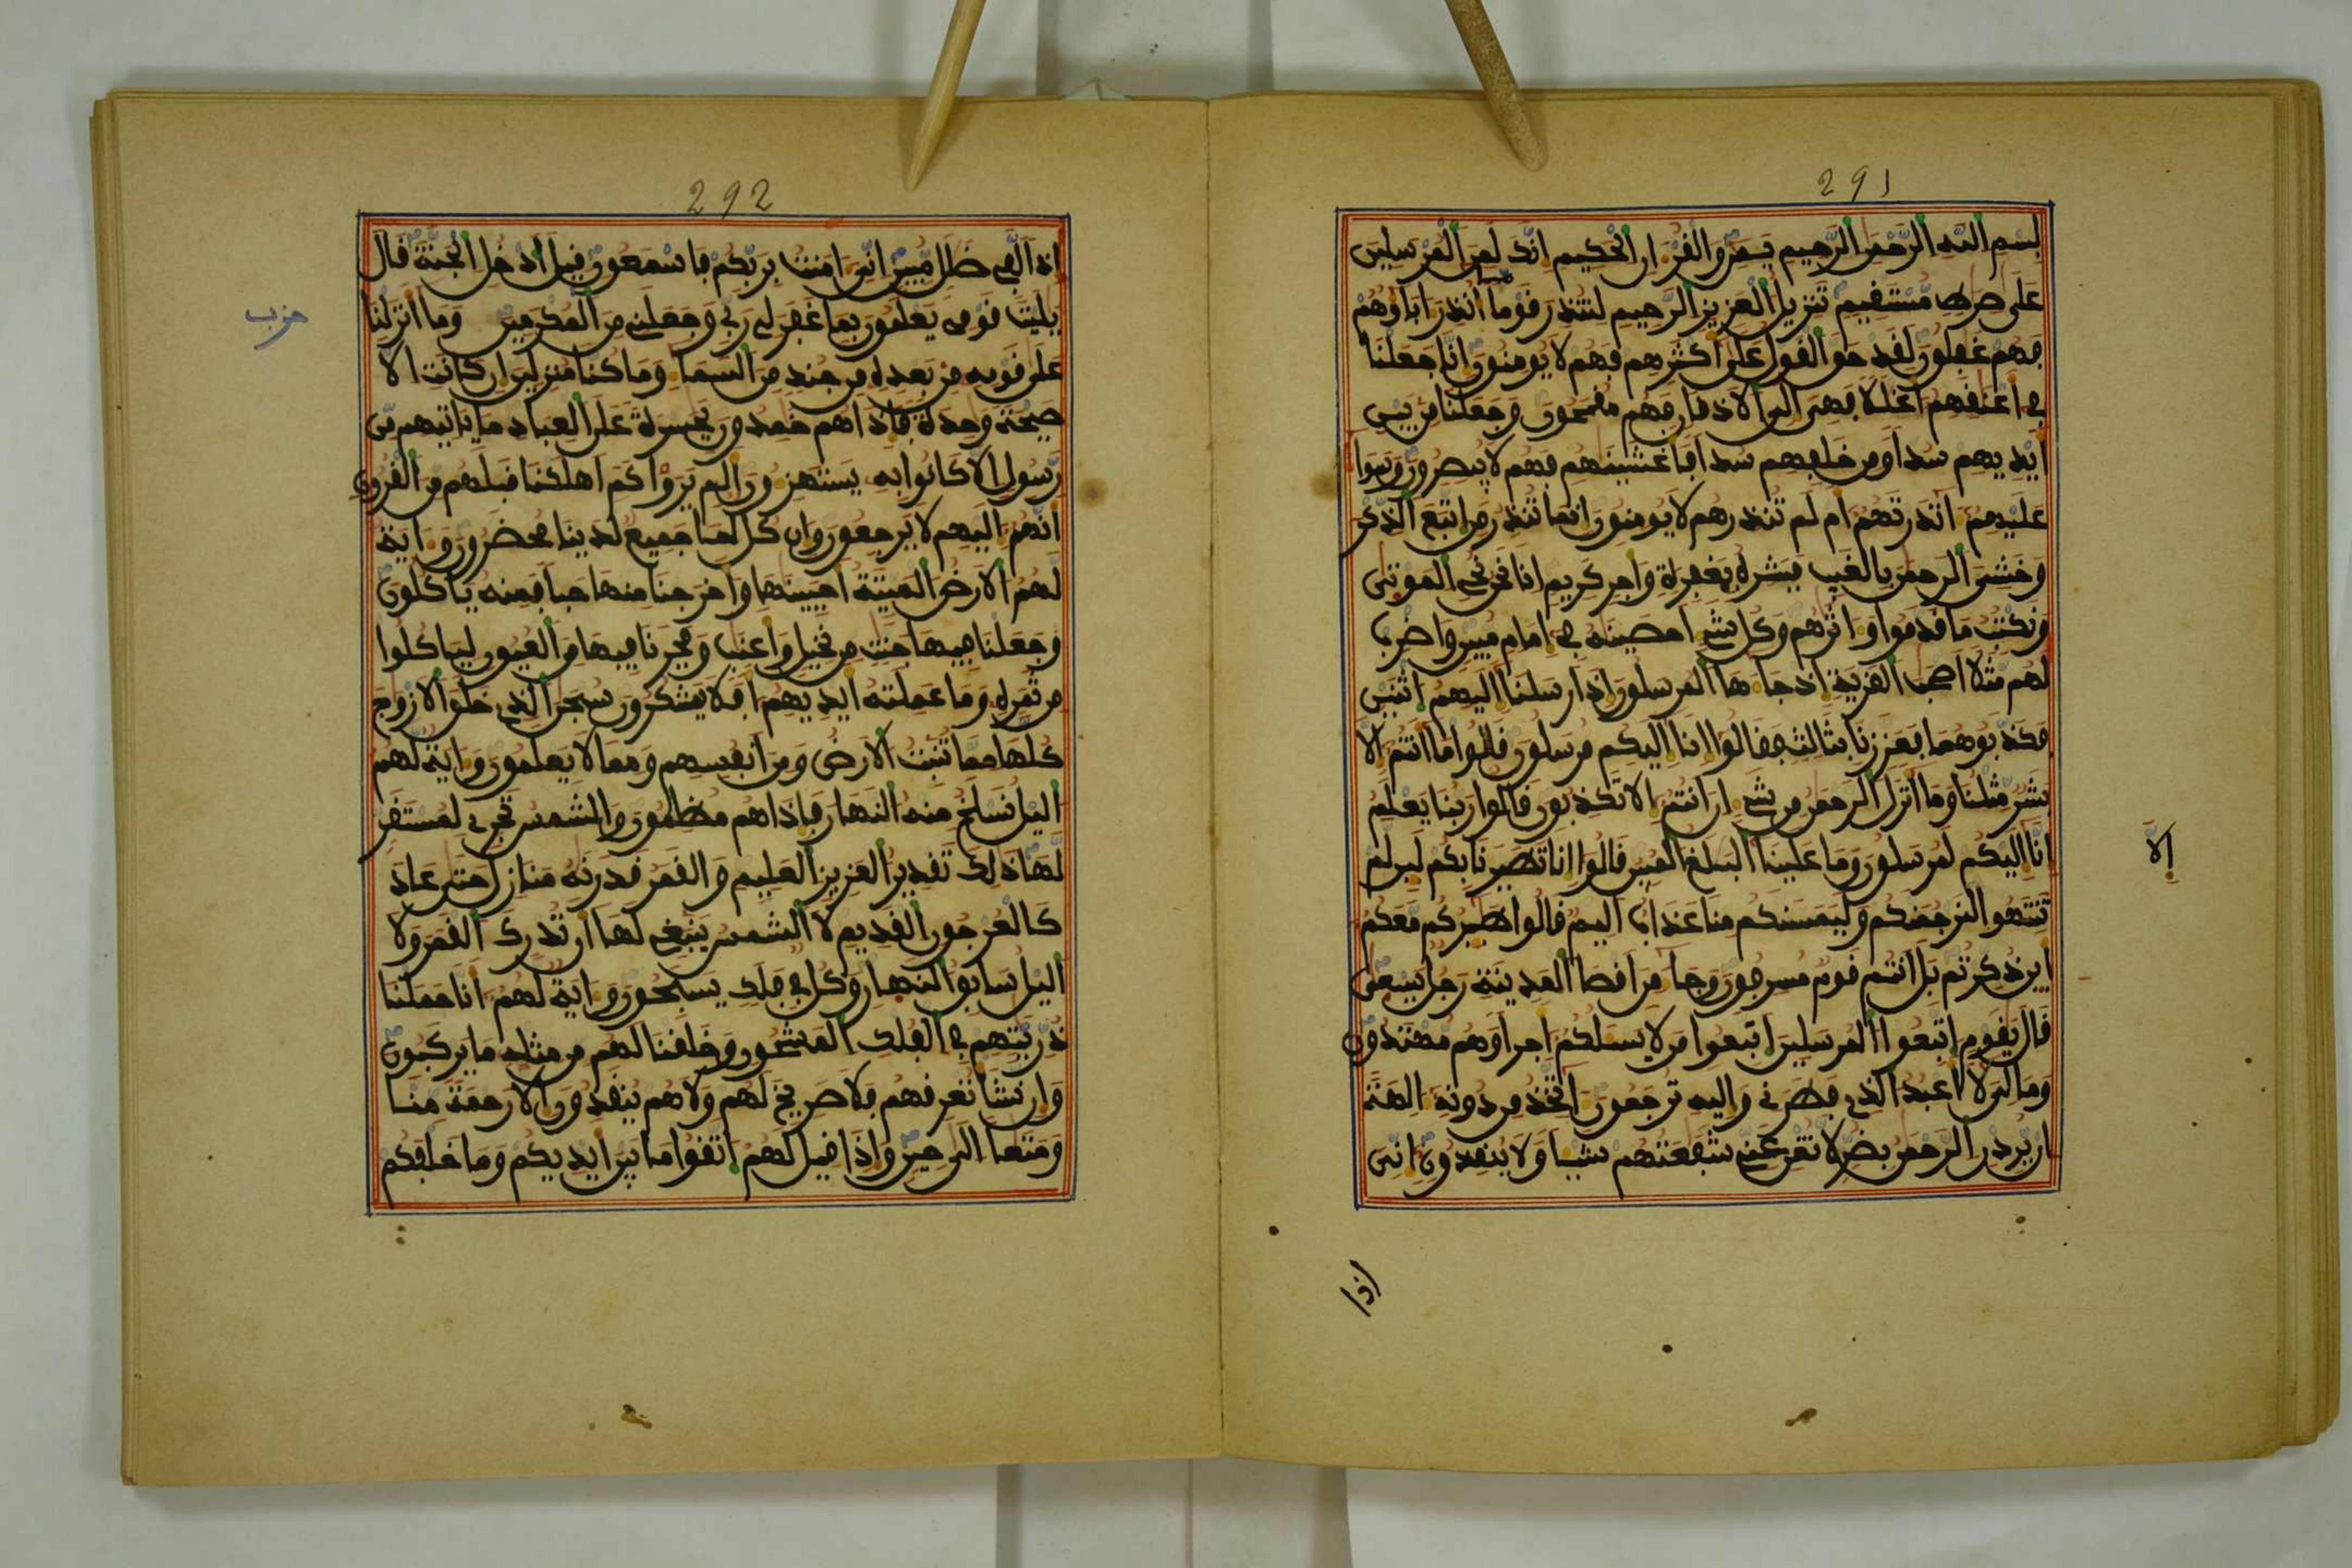 291
بسم الله الرحمن الرحيم يس والقرءان الحكيم انك لمن المرسلين
على صرط مستقيم تنزيل العزيز الرحيم لتنذر قوما ما انذر اباؤهم
فهم غفلون لقد حق القول على اكثرهم فهم لا يومنون انا جعلنا
في اعنقهم اغللا فهي الى الاذقان فهم مقمحون وجعلنا من بين
ايديهم سدا ومن خلفهم سدا فاغشينهم فهم لا يبصرون وسوا
عليهم انذرتهم ام لم تنذرهم لا يومنون انما تنذر من اتبع الذكر
وخشي الرحمن بالغيب فبشره بمغفرة واجر كريم انا نحن نحي الموتى
ونكتب ما قدموا واثرهم وكل شي احصينه في امام مبين واضرب
لهم مثلا اصحب القرية اذ جاها المرسلون اذ ارسلنا اليهم اثنين
فكذبوهما فعززنا بثالث فقالوا انا اليكم مرسلون قالوا ما انتم الا
بشر مثلنا وما انزل الرحمن من شي ان انتم الا تكذبون قالوا ربنا يعلم
انا اليكم لمرسلون وما علينا البلغ المبين قالوا انا تطيرنا بكم لين لم
الا
تنتهوا لنرجمنكم وليمسنكم منا عذاب اليم قالوا طيركم معكم
اين ذكرتم بل انتم قوم مسرفون وجا من اقصا المدينة رجل يسعى
قال يقوم اتبعوا المرسلين اتبعوا من لا يسلكم اجرا وهم مهتدون
وما لي لا اعبد الذي فطرني واليه ترجعون اتخذ من دونه الهة
ان يردن الرحمن بضر لا تغن عني شفعتهم شيا ولا ينقذون اني
اذا
292
اذا لفي ضلل مبين اني امنت بربكم فاسمعون قيل ادخل الجنة قال
يليت قومي يعلمون بما غفر لي ربي وجعلني من المكرمين وما انزلنا
حزب
على قومه من بعده من جند من السما وما كنا منزلين ان كانت الا
صيحة وحدة فاذا هم خمدون يحسرة على العباد ما ياتيهم من
رسول الا كانوا به يستهزون الم يروا كم اهلكنا قبلهم من القرون
انهم اليهم لا يرجعون وان كل لما جميع لدينا محضرون واية
لهم الارض الميتة احيينها واخرجنا منها حبا فمنه ياكلون
وجعلنا فيها جنت من نخيل واعنب وفجرنا فيها من العيون لياكلوا
من ثمره وما عملته ايديهم افلا يشكرون سبحن الذي خلق الازوج
كلها مما تنبت الارض ومن انفسهم ومما لا يعلمون واية لهم
اليل نسلخ منه النهار فاذا هم مظلمون والشمس تجري لمستقر
لها ذلك تقدير العزيز العليم والقمر قدرنه منازل حتى عاد
كالعرجون القديم لا الشمس ينبغي لها ان تدرك القمر ولا
اليل سابق النهار وكل في فلك يسبحون واية لهم انا حملنا
ذريتهم في الفلك المشحون وخلقنا لهم من مثله ما يركبون
وان نشا نغرقهم فلا صريخ لهم ولا هم ينقذون الا رحمة منا
ومتعا الى حين واذا قيل لهم اتقوا ما بين ايديكم وما خلفكم